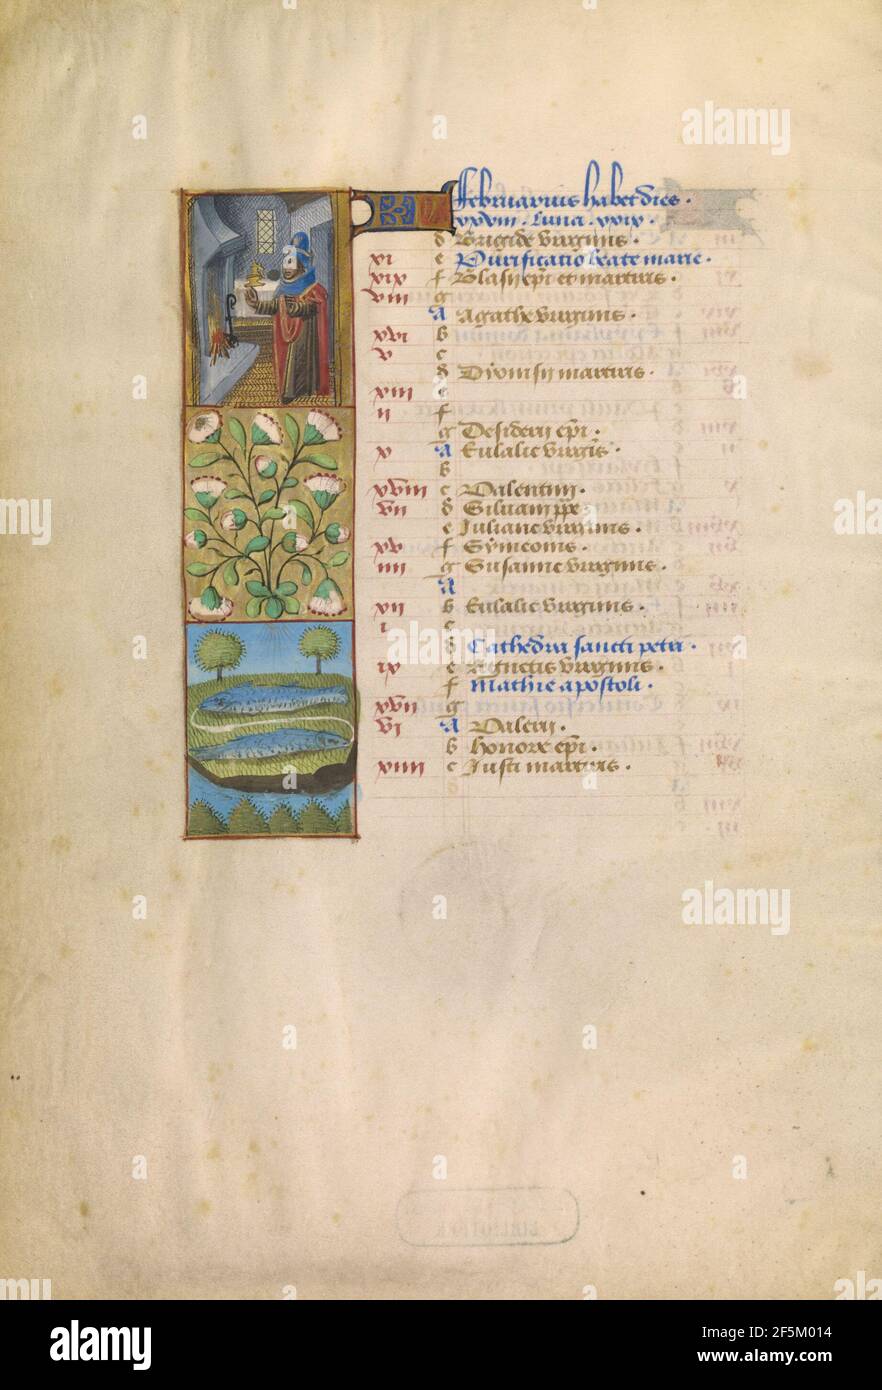 KL Februarius habet dies .
xxviii . Luna . xxix .
d Brigide virginis .
xi e Purificatio beate marie .
xix f Blasij epi et martiris .
viii g
A Agathe virginis .
xvi b
v c
d Dyonisij martiris .
xiii e
ii f
g Desiderij epi .
x A Eulalie virgis .
b
xviii c Valentini .
vii d Siluani ppe
e Juliane virginis .
xv f Symeonis .
iiii g Susanne virginis .
A
xii b Eulalie virginis .
i c
d Cathedra sancti petri .
ix e virginis .
f Mathie apostoli .
xvii g
vi A Valerij .
b honore epi .
xiiii c Justi martiris .
alamy
Image ID: 2F5M014
www.alamy.com